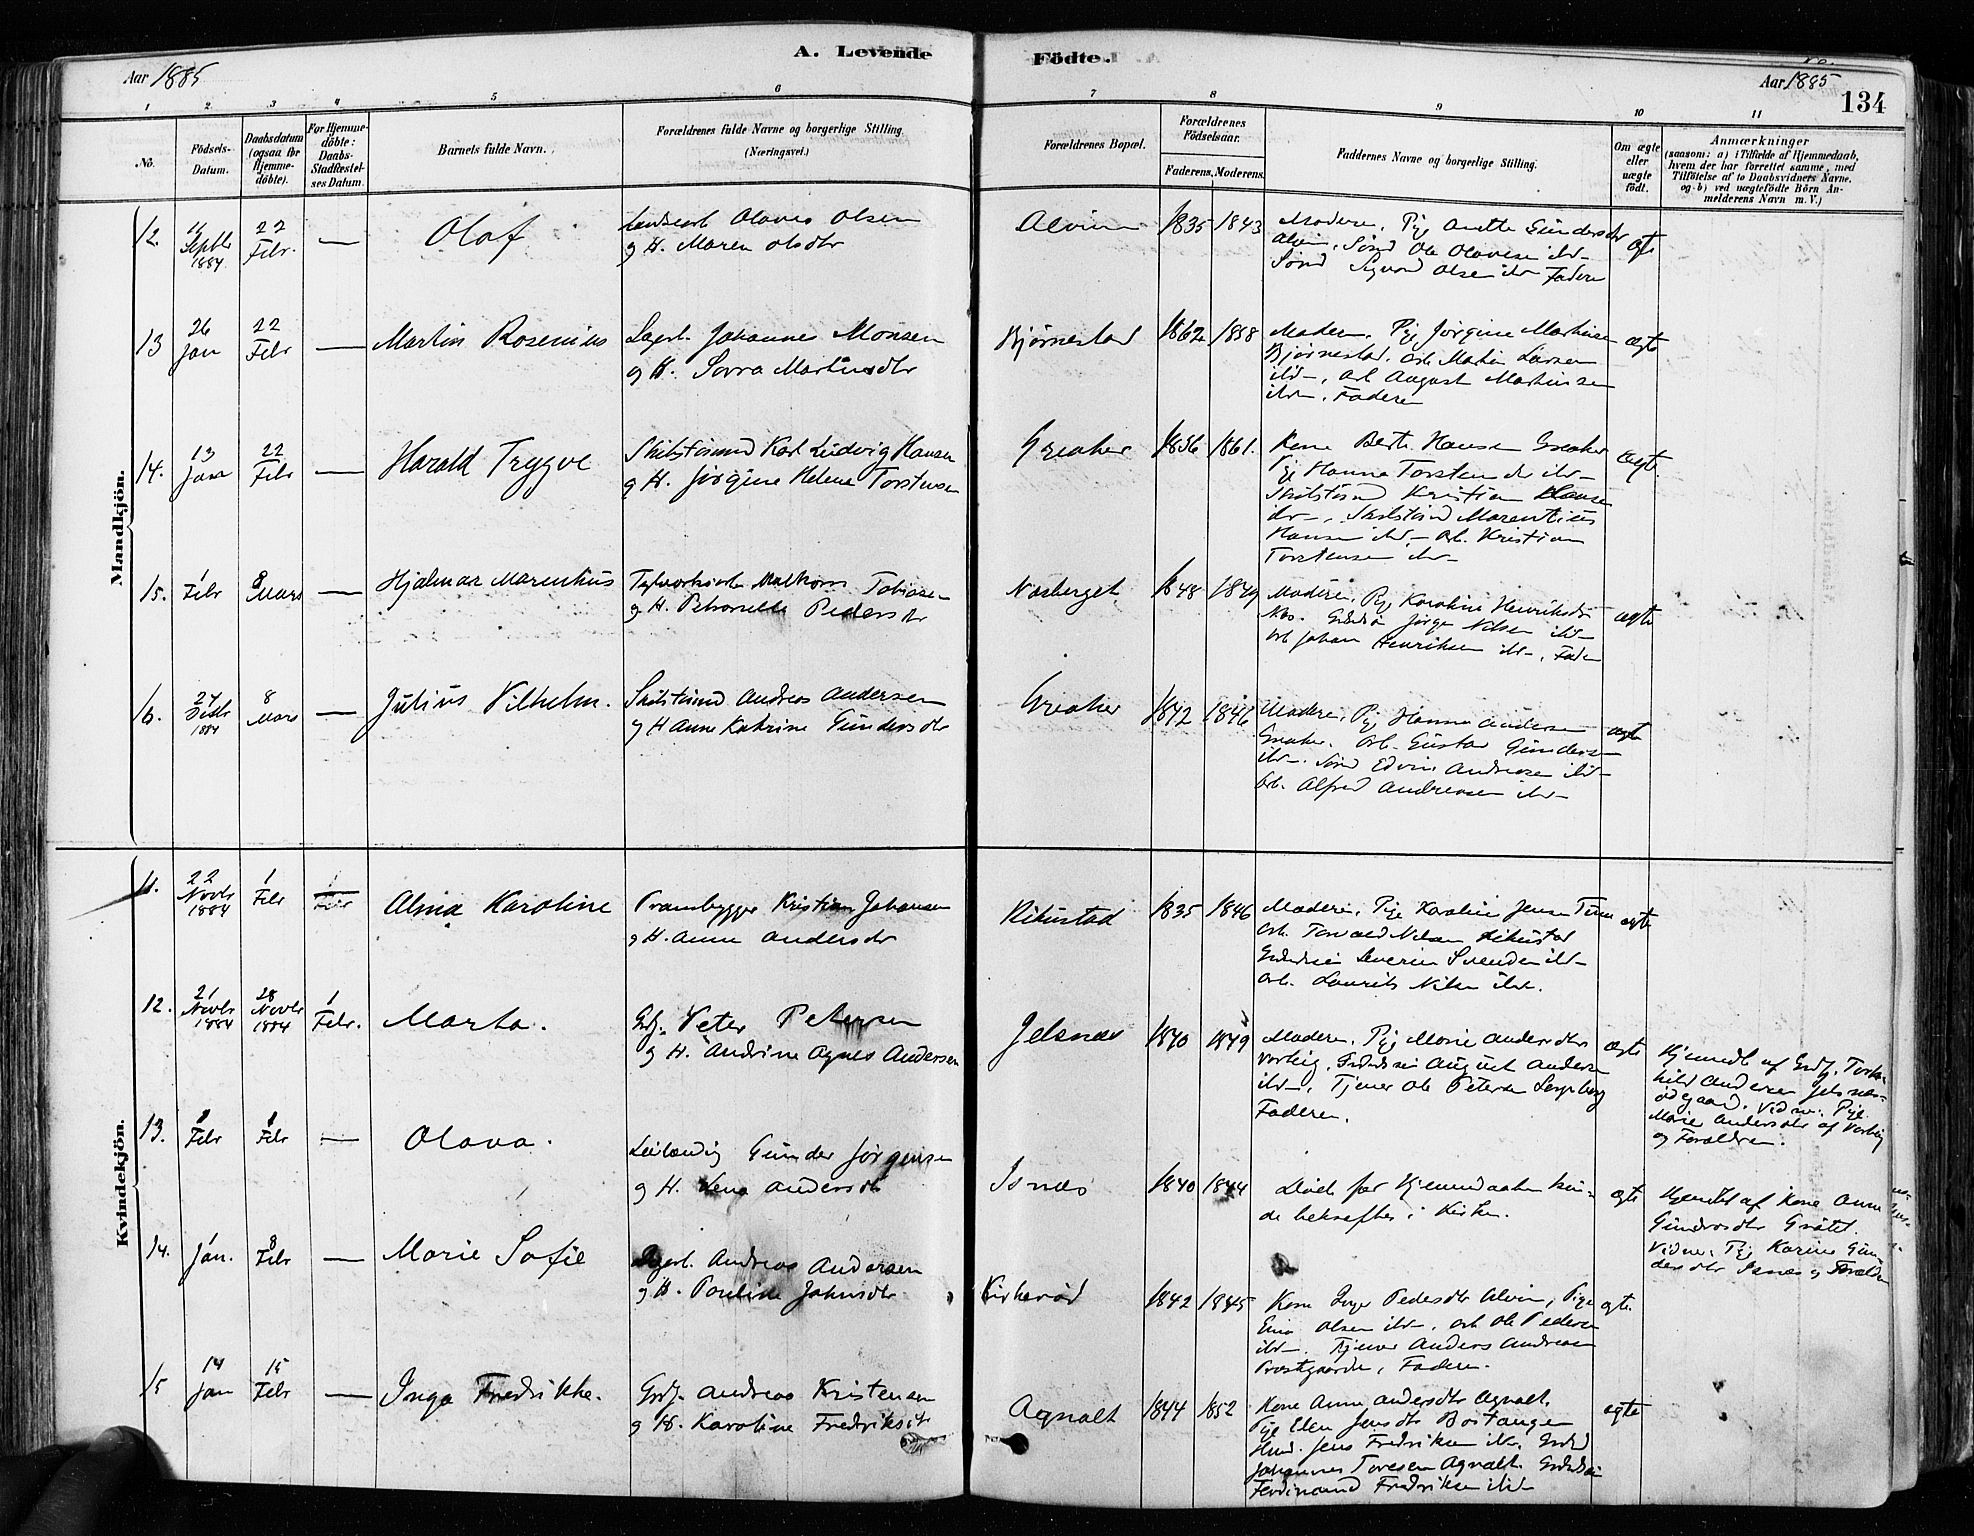 A. Levende
Födte.
Aar 1885
Aar 1885
134
1 2 3 4 5 6 7 8 9 10 11
No.
Födsels-
Datum.
Daabsdatum
(ogsaa for
Hjemme-
döbte).
For Hjemme-
döbte:
Daabs-
Stadfæstel-
ses Datum.
Barnets fulde Navn.
Forældrenes fulde Navne og borgerlige Stilling.
(Næringsvei.)
Forældrenes Bopæl.
Forældrenes
Födselsaar.
Faderens. Moderens.
Faddernes Navne og borgerlige Stilling.
Om ægte
eller
uægte
födt.
Anmærkninger
(saasom: a) i Tilfælde af Hjemmedaab,
hvem der har forrettet samme, med
Tilföielse af to Daabsvidners Navne.
og b) ved uægtefödte Börn An-
melderens Navn m. V.)
Mandkjön.
12. Septbr 1884 22 Febr. — Olaf
Olaves Olsen
og H. Maren Olsdtr
Alvim 1835 1843
Moderen, Pige Anette Gundersdtr
Alvim, Ole Olavesen ibd
Sigvard Olsen ibd Faderen
ægte
13 26 Jan 22 Febr — Martin Rosenius
Dagarb. Johannes Monsen
og H. Martinsdtr
Bjørnestad 1862 1858
Moderen. Pige Jørgine Martinsen
Bjørnestad. Arb. Martin Larsen
ibd, Arb August Martinsen
ibd. Faderen
ægte
14. 13 Jan 22 Febr — Harald Trygve
Skibstømmd Karl Ludvig Hansen
og H. Jørgine Helene Torstensen
Greaker 1856 1861.
Kone Berte Hansen Greaker
Pige Hanna Torstensdr ibd
Skibstømd Kristian Hansen
ibd, Skibstømd Marentius
Hansen ibd Arb. Kristian
Torstensen ibd
ægte.
15. 1 Febr 8 Marts — Hjalmar Marentius
Malkom Tobiasen
og H. Petronelle Pedersdr
Næsberget 1848 1849
Moderen. Pige Karoline Henriksdr
Jørgen Nilsen ibd
Arb Johan Henriksen ibd, Fader
ægte
16. 24 1884 8 Mars — Julius Vilhelm.
Skibstømmd Andreas Andersen
og H Anne Katrine Gundersdtr
Greaker 1842 1846
Moderen. Pige Hanna Andersen
Greaker. Arb. Gustav Gundersen
ibd. Edvin Andreasen ibd
Arb. Alfred Andreasen ibd
ægte
Kvindekjön.
11. 22 Novbr 1884 1 Febr 1 Febr Alma Karoline
Prambygger Kristian Johansen
og H. Anne Andersdtr
1835 1846
Moderen. Pige Karoline Jensen Tune
Arb. Torvald Nilsen
Severin Svendsen ibd
Arb. Laurits Nilsen ibd.
ægte
12. 21 Novbr 1884 28 Novbr 1884 1 Febr. Marta.
Grdj. Peter Petersen
og H. Andrine Agnes Andersen
Jelsnæs 1840 1849
Moderen. Pige Marie Andersdtr
Vorbig, August Andersen
ibd, Tjener Ole Petersen
Faderen.
ægte
Hjemdbt af Grdj. Tork-
hild Andersen Jelsnæs-
ødegaard. Vidner: Pige
Marie Andersdtr af Vorbig
og Forældrene.
13. Febr 1 Febr — Olava.
Leilænding Gunder Jørgensen
og H. Lena Andersdtr
Isnæs 1840 1844
Døde før Hjemmdaaben kun-
de bekræftes i Kirken.
ægte
Hjemdbt af Kone Anne
Gundersdtr
Vidner: Pige Karine Gun-
dersdtr Isnæs og Forældre
14. 1 Jan. 8 Febr — Marie Sofie
Dagarb. Andreas Andersen
og H. Pauline Johnsdtr
Kirkerød 1842 1845
Kone Inger Pedersdtr Alvim, Pige
Olsen ibd, Arb Ole Pedersen
ibd. Tjener Anders Andreasen
Præstgaarden, Faderen.
ægte.
15 14 Jan 15 Febr — Inga Fredrikke.
Grdj. Andreas Kristensen
og H. Karoline Fredriksdtr
Agnalt 1844 1852
Kone Anne Andersdtr Agnalt.
Pige Elen Jensdtr Bostangen
Jens Fredriksen ibd.
Johannes Toresen Agnalt.
Ferdinand Fredriksen ibd
ægte